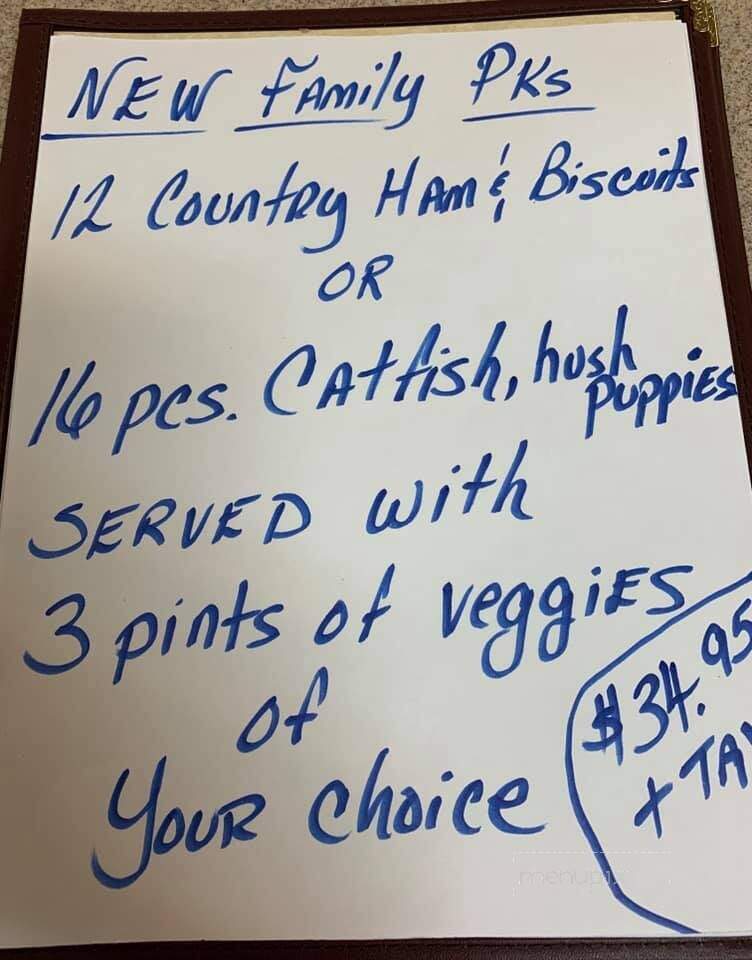 NEW Family PKs
12 Country Ham & Biscuits
OR
16 pcs. Catfish, hush
puppies
SERVED with
3 pints of veggies
of
Your choice
$34.95
+ TAX